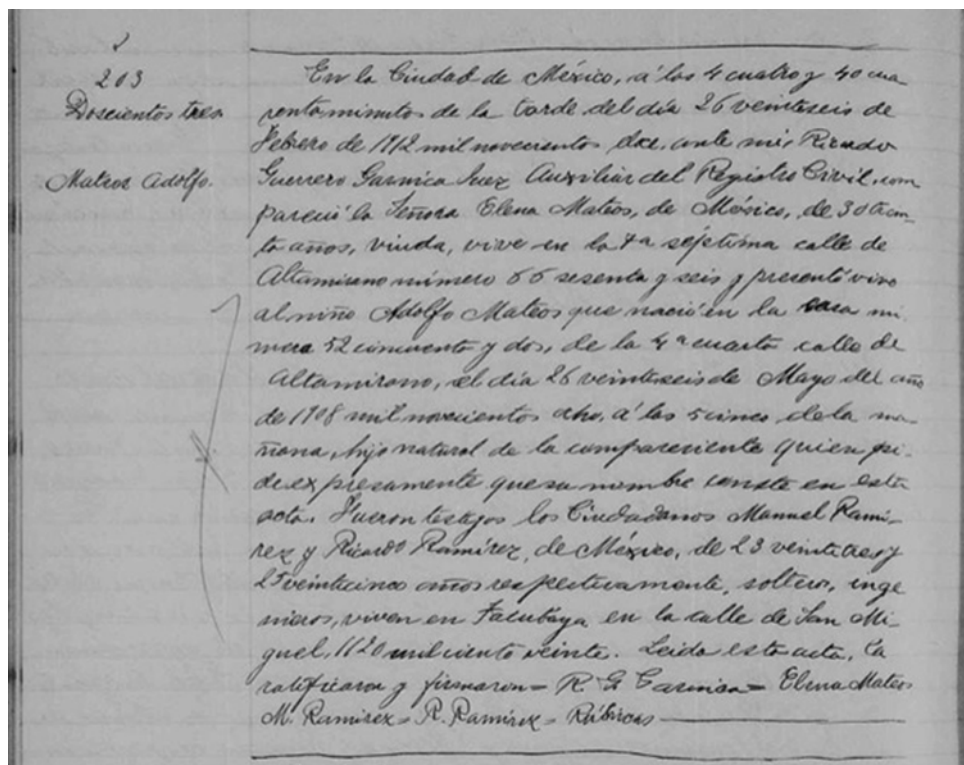 203
Doscientos tres
Mateos Adolfo.
En la Ciudad de México, á las 4 cuatro y 40 cua
renta minutos de la tarde del día 26 veintiseis de
Febrero de 1912 mil novecientos doce, ante mi, Ricardo
Guerrero Garnica Juez Auxiliar del Registro Civil, com
pareció la Señora Elena Mateos, de México, de 30 trein_
ta años, viuda, vive en la 7a séptima calle de
Altamirano número 66 sesenta y seis y presentó vivo
al niño Adolfo Mateos que nació en la casa nú
mero 52 cincuenta y dos, de la 4a cuarta calle de
Altamirano, el día 26 veintiseis de Mayo del año
de 1908 mil novecientos ocho, á las 5 cinco de la ma
ñana, hijo natural de la compareciente quien pi_
de expresamente que su nombre conste en esta
acta. Fueron testigos los Ciudadanos Manuel Ramí_
rez y Ricardo Ramírez, de México, de 23 veintitres y
25 veinticinco años respectivamente, solteros, inge
nieros, viven en Tacubaya en la calle de San Mi_
guel, 1120 mil ciento veinte. Leida esta acta, la
ratificaron y firmaron = R. G. Garnica = Elena Mateos
M. Ramirez = R. Ramirez = Rúbricas